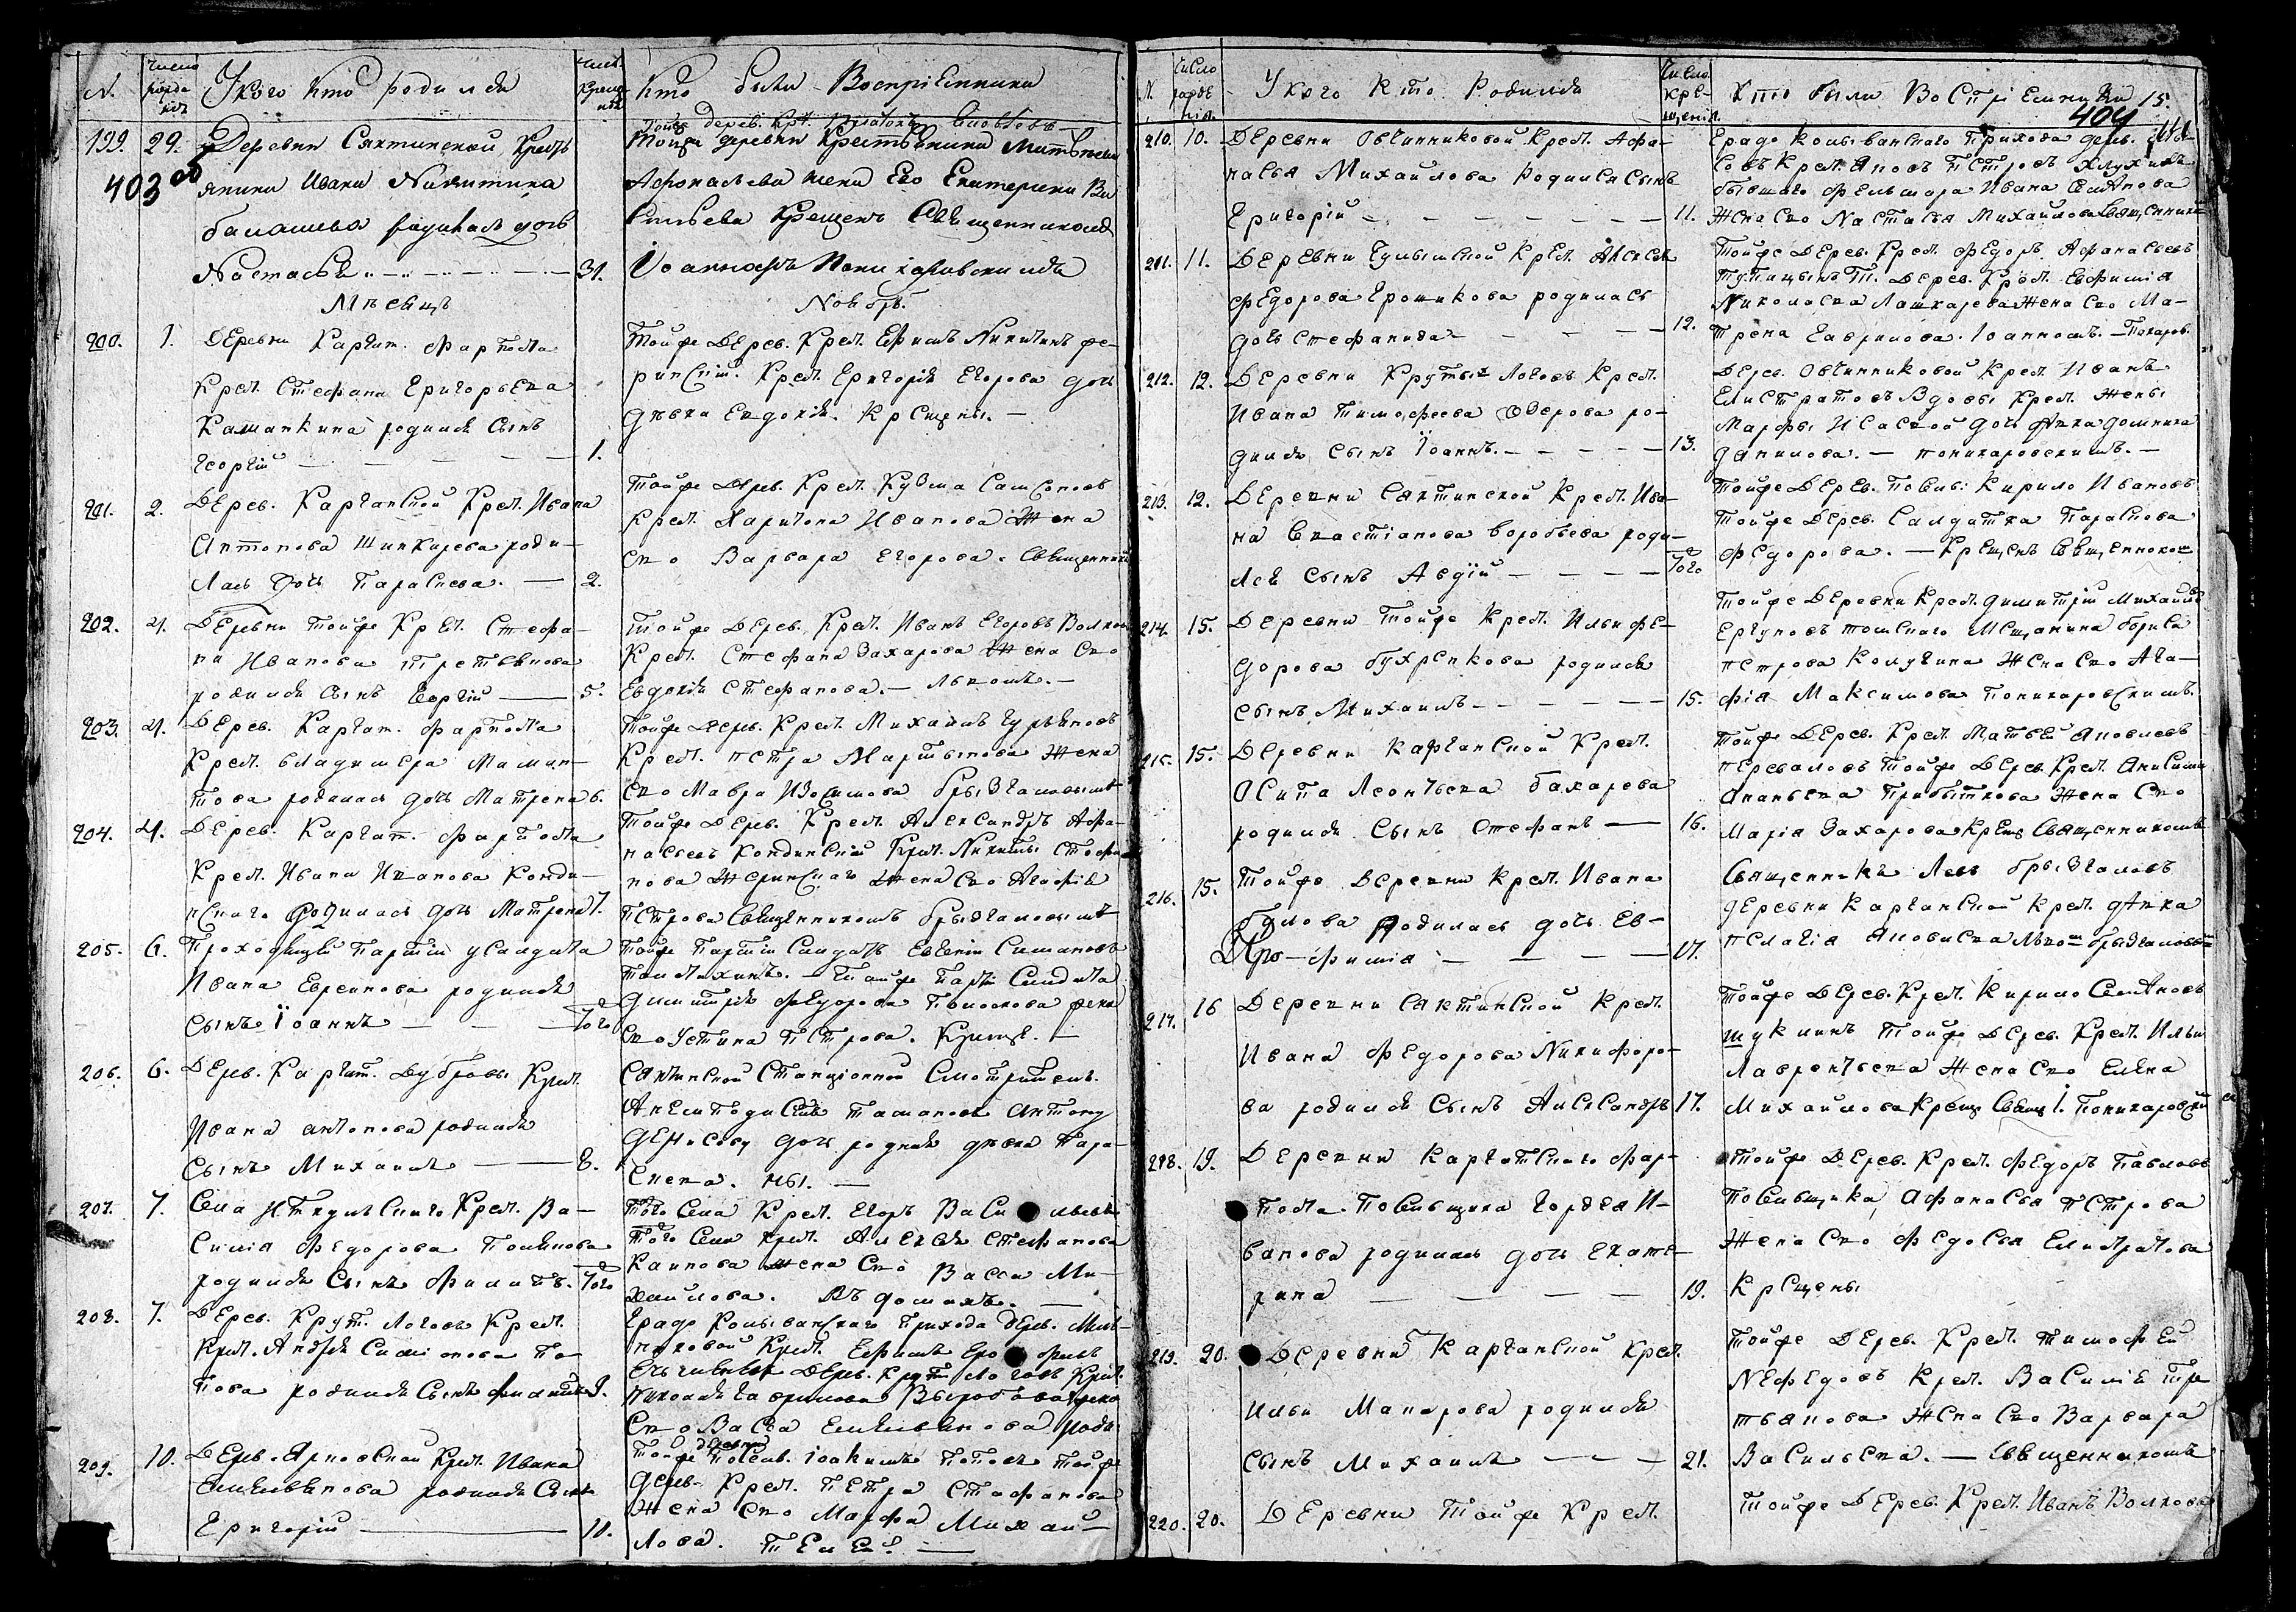 N. Число рожденія У кого кто родился Число крещенія Кто были Воспріемники
199. 29. Деревни Сектинской Кресть
403 об
янина Ивана Никитина
балашева родилась дочь
Настасья 31.
Тойже деревни Крестьянина
Афонасьева жена Его Екатерина Ва
сильева Крещенъ Священникомъ
Іоанномъ Понихаровскимъ
Месецъ Ноябрь.
200. 1. Деревни Каргат. Фарпоста
Крест. Стефана Григорьева
Камапкина родился сынъ
Георгій 1.
Тойже Дерев. Крест. Ефимъ Никитинъ
Крест. Григорія Егорова дочь
девка Евдокія. Крещены.
201. 2. Дерев. Карганской Крест. Ивана
Антонова Шинкарева роди-
лась дочь Параскева. 2.
Тойже Дерев. Крест. Кузма Самсоновъ
Крест. Харитона Иванова Жена
Его Варвара Егорова. Священник
202. 4. Деревни тойже Крест. Стефа-
на Иванова Третьякова
родился сынъ Георгій 5.
Тойже Дерев. Крест. Иванъ Егоровъ Волков
Крест. Стефана Захарова Жена Его
Евдокія Стефанова. Львомъ.
203. 4. Дерев. Каргат. Фарпоста
Крест. Владимера Мамон-
това родилась дочь Матрена 6.
Тойже Дерев. Крест. Михаилъ Гурьяновъ
Крест. Петра Мартынова Жена
Его Мавра Изосимова брызгаловымъ
204. 4. Дерев. Каргат. Фарпоста
Крест. Ивана Иванова Конди-
нскаго родилась дочь Матрена 7.
Тойже Дерев. Крест. Александръ Афа-
насьевъ Кондинскій Крест. Никиты Стефа
нова Жеринскаго Жена Его Агафія
Петрова Священникомъ брызгаловымъ
205. 6. Проходящей Партіи у Салдата
Ивана Евреинова родился
сынъ Іоаннъ Того
Тойже Партіи Салдатъ Евгеній Симановъ
Тойже Партіи Салдата
Димитрія Федорова жена
Его Устина Петрова. Крещ.
206. 6. Дерев. Каргат. Дубровы Крест.
Ивана Антонова родился
сынъ Михаилъ 8.
Сектинской Станціонной Смотритель
дочь родная девка Пара-
скева.
207. 7. Села Иткульскаго Крест. Ва-
силія Федорова Полякова
родился сынъ Филипъ. Того
Того Села Крест. Егоръ Васильевъ
Того Села Крест. Алексея Стефанова
Каинова жена Его Васса Ми-
хайлова. Въ домахъ.
208. 7. Дерев. Крут. Логовъ Крест.
Крест. Андрея Симіонова По-
пова родился сынъ Филипъ 9.
Града Колыванскаго Прихода Дерев.
Крест. Ефимъ
Дерев. Крут. Логовъ Крест.
Николая Гаврилова жена
Его Васса Емельянова
209. 10. Дерев. Крест. Ивана
Емельянова родился Сынъ
Григорій 10.
Тойже деревни Іоакимъ Поповъ тойже
дерев. Крест. Петра Стефанова
Жена Его Марфа Михай-
лова.
N. Число рожденія У кого кто Родился Число крещенія Кто были Воспріемники 15.
404
210. 10. Деревни Овчинниковой Крест. Афа-
насья Михайлова Родился сынъ
Григорій 11.
Града Колыванскаго Прихода дерев.
Крест. Яковъ Петровъ
бывшаго Фельшора Ивана Степанова
Жена Его Настасья Михайлова Священник
211. 11. Деревни Чулымской Крест. Алексея
Федорова Ерошикова родилась
дочь Стефанида 12.
Тойже Дерев. Крест. Федоръ Афанасьевъ
Тупицынъ Т. Дерев. Крест. Евфимія
Николаева Лашкарева Жена Его Ма-
трена Гаврилова. Іоанномъ.
212. 12. Деревни Крутыхъ Логовъ Крест.
Ивана Тимофеева Озерова ро-
дился сынъ Іоаннъ. 13.
Дерев. Овчинниковой Крест. Иванъ
Елистратовъ Вдовы Крест. Жены
Марфы Исаевой дочь девка Домника
Данилова. понихаровскимъ.
213. 12. Деревни Сектинской Крест. Ива-
на Евастіанова Воробьева роди-
лся сынъ Авдій Того
Тойже Дерев. Кирило Ивановъ
Тойже Дерев. Салдатка Параскева
Федорова. Крещенъ Священнико
214. 15. Деревни Тойже Крест. Ильи Фе-
дорова бухрякова родился
сынъ Михаилъ 15.
Тойже Деревни Крест. Димитрій Михайловъ
Ергуновъ Томскаго Мещанина бориса
Петрова Калугина Жена Его Ага-
фія Максимова Понихаровскимъ.
215. 15. Деревни Карганской Крест.
Осипа Леонтьева бахарева
родился Сынъ Стефанъ 16.
Тойже Дерев. Крест. Матвей Яковлевъ
переваловъ Тойже Дерев. Крест. Анисима
Ананьева Прибыткова Жена Его
Марія Захарова Крещ. Священникомъ
216. 15. Тойже Деревни Крест. Ивана
родилась дочь Ев-
фимія 17.
Священникъ Левъ брызгаловъ
деревни Карганской Крест. девка
Пелагія Яковлева Львом брызгаловы
217. 16 Деревни Сектинской Крест.
Ивана Федорова Никифоро-
ва родился Сынъ Александръ 17.
Тойже Дерев. Крест. Кирило Семеновъ
щукинъ Тойже Дерев. Крест. Ильи
Лаврентьева Жена Его Елена
Михайлова Крещ. Свящ. І. Понихаровскій
218. 19. Деревни Каргатскаго Фар-
поста Гордея И-
ванова родилась дочь Екате-
рина 19.
Тойже Дерев. Крест. Федоръ Павловъ
Афанасья Петрова
Жена Его Федосья Елистратова
Крещены
219. 20. Деревни Карганской Крест.
Ильи Макарова родился
сынъ Михаилъ 21.
Тойже Дерев. Крест. Тимофей
Нефедовъ Крест. Василія Тре
тьякова Жена Его Варвара
Васильева. Священникомъ
220. 20. Деревни Тойже Крест.
Тойже Дерев. Крест. Иванъ Волковъ